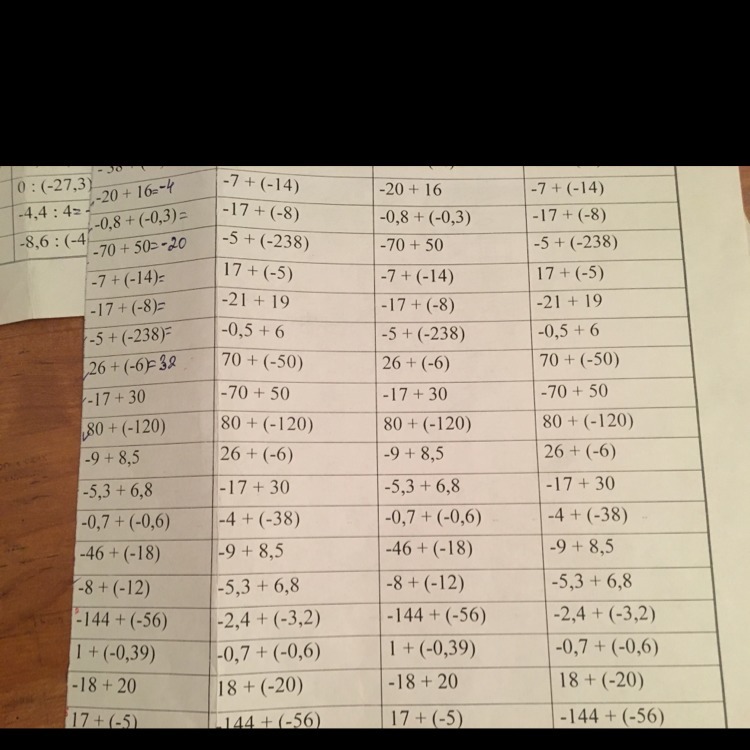 0 : (-27,3)
-4,4 : 4=
-8,6 : (-4
-20 + 16=-4 -7 + (-14) -20 + 16 -7 + (-14)
-0,8 + (-0,3)= -17 + (-8) -0,8 + (-0,3) -17 + (-8)
-70 + 50=-20 -5 + (-238) -70 + 50 -5 + (-238)
-7 + (-14)= 17 + (-5) -7 + (-14) 17 + (-5)
-17 + (-8)= -21 + 19 -17 + (-8) -21 + 19
-5 + (-238)= -0,5 + 6 -5 + (-238) -0,5 + 6
26 + (-6)=32 70 + (-50) 26 + (-6) 70 + (-50)
-17 + 30 -70 + 50 -17 + 30 -70 + 50
80 + (-120) 80 + (-120) 80 + (-120) 80 + (-120)
-9 + 8,5 26 + (-6) -9 + 8,5 26 + (-6)
-5,3 + 6,8 -17 + 30 -5,3 + 6,8 -17 + 30
-0,7 + (-0,6) -4 + (-38) -0,7 + (-0,6) -4 + (-38)
-46 + (-18) -9 + 8,5 -46 + (-18) -9 + 8,5
-8 + (-12) -5,3 + 6,8 -8 + (-12) -5,3 + 6,8
-144 + (-56) -2,4 + (-3,2) -144 + (-56) -2,4 + (-3,2)
1 + (-0,39) -0,7 + (-0,6) 1 + (-0,39) -0,7 + (-0,6)
-18 + 20 18 + (-20) -18 + 20 18 + (-20)
17 + (-5) -144 + (-56) 17 + (-5) -144 + (-56)